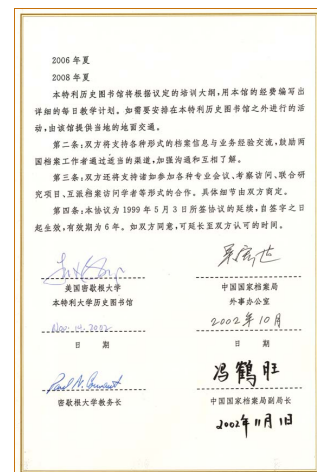 2006 年夏
2008 年夏
本特利历史图书馆将根据议定的培训大纲，用本馆的经费编写出
详细的每日教学计划。如需要安排在本特利历史图书馆之外进行的活
动，由该馆提供当地的地面交通。
第二条：双方将支持各种形式的档案信息与业务经验交流，鼓励两
国档案工作者通过适当的渠道，加强沟通和互相了解。
第三条：双方还将支持诸如参加各种专业会议、考察访问、联合研
究项目、互派档案访问学者等形式的合作。具体细节由双方商定。
第四条：本协议为 1999 年 5 月 3 日所签协议的延续，自签字之日
起生效，有效期为 6 年。如双方同意，可延长至双方认可的时间。
美国密歇根大学
本特利大学历史图书馆
Nov. 14, 2002
日 期
密歇根大学教务长
中国国家档案局
外事办公室
2002 年 10 月
日 期
冯鹤旺
中国国家档案局副局长
2002年11月1日